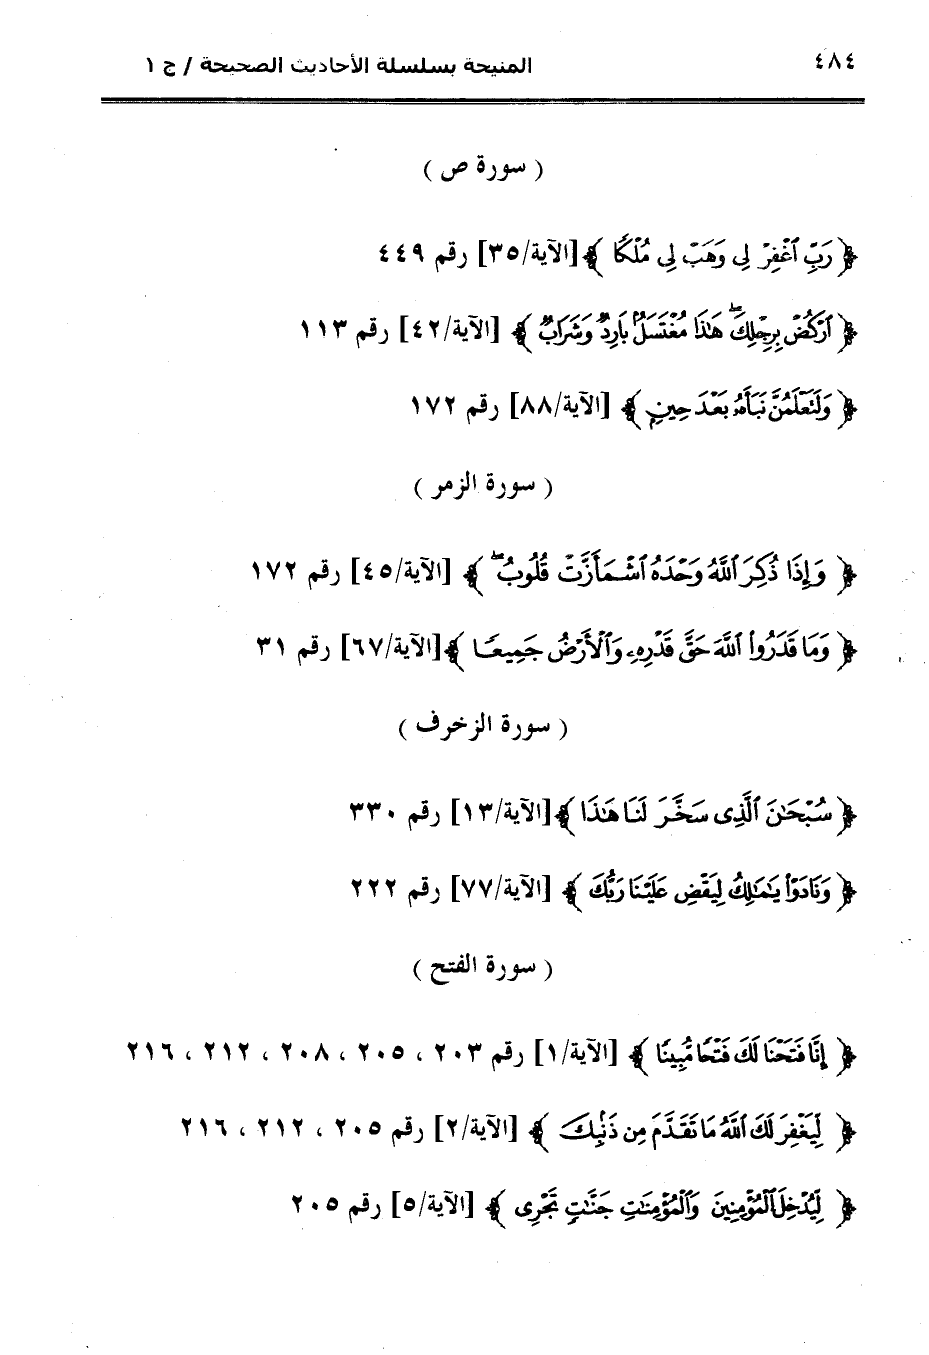 ٤٨٤
المنيحة بسلسلة الأحاديث الصحيحة / ج ١
( سورة ص )
﴿ رَبِّ ٱغْفِرْ لِى وَهَبْ لِى مُلْكًا ﴾[الآية/٣٥] رقم ٤٤٩
﴿ ٱرْكُضْ بِرِجْلِكَ ۖ هَٰذَا مُغْتَسَلٌۢ بَارِدٌ وَشَرَابٌ ﴾ [الآية/٤٢] رقم ١١٣
﴿ وَلَتَعْلَمُنَّ نَبَأَهُۥ بَعْدَ حِينٍۭ ﴾ [الآية/٨٨] رقم ١٧٢
( سورة الزمر )
﴿ وَإِذَا ذُكِرَ ٱللَّهُ وَحْدَهُ ٱشْمَأَزَّتْ قُلُوبُ ۖ ﴾ [الآية/٤٥] رقم ١٧٢
﴿ وَمَا قَدَرُوا۟ ٱللَّهَ حَقَّ قَدْرِهِۦ وَٱلْأَرْضُ جَمِيعًا ﴾[الآية/٦٧] رقم ٣١
( سورة الزخرف )
﴿ سُبْحَٰنَ ٱلَّذِى سَخَّرَ لَنَا هَٰذَا ﴾[الآية/١٣] رقم ٣٣٠
﴿ وَنَادَوْا۟ يَٰمَٰلِكُ لِيَقْضِ عَلَيْنَا رَبُّكَ ﴾ [الآية/٧٧] رقم ٢٢٢
( سورة الفتح )
﴿ إِنَّا فَتَحْنَا لَكَ فَتْحًا مُّبِينًا ﴾ [الآية/١] رقم ٢٠٣ ، ٢٠٥ ، ٢٠٨ ، ٢١٢ ، ٢١٦
﴿ لِّيَغْفِرَ لَكَ ٱللَّهُ مَا تَقَدَّمَ مِن ذَنۢبِكَ ﴾ [الآية/٢] رقم ٢٠٥ ، ٢١٢ ، ٢١٦
﴿ لِّيُدْخِلَ ٱلْمُؤْمِنِينَ وَٱلْمُؤْمِنَٰتِ جَنَّٰتٍ تَجْرِى ﴾ [الآية/٥] رقم ٢٠٥